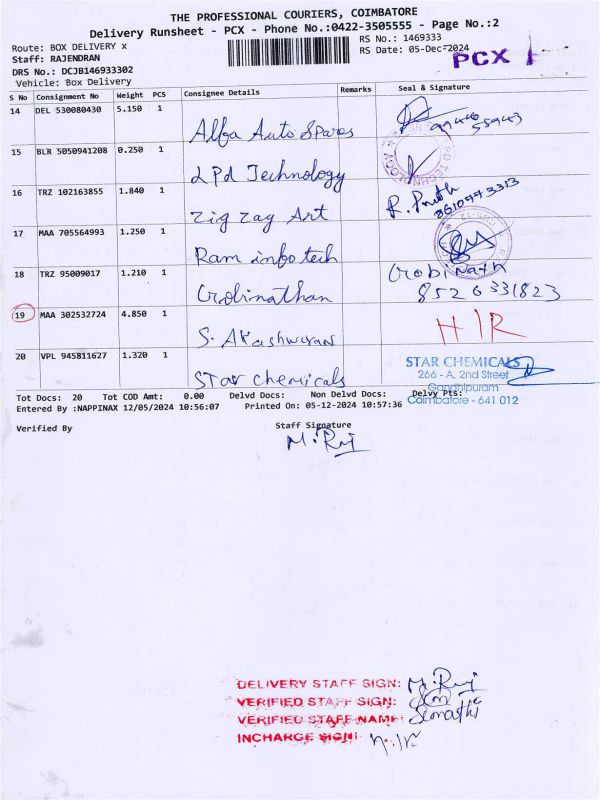 THE PROFESSIONAL COURIERS, COIMBATORE
Delivery Runsheet - PCX - Phone No.:0422-3505555 - Page No.:2
Route: BOX DELIVERY x
RS No.: 1469333
Staff: RAJENDRAN
RS Date: 05-Dec-2024
PCX
DRS No.: DCJB146933302
Vehicle: Box Delivery
S No Consignment No Weight PCS Consignee Details Remarks Seal & Signature
14 DEL 530080430 5.150 1
Alfa Auto Spares
15 BLR 5050941208 0.250 1
LPd Technology
16 TRZ 102163855 1.840 1
Zig Zag Art
17 MAA 705564993 1.250 1
Ram infotech
18 TRZ 95009017 1.210 1
Gobinathan
Gobinath
8526331823
19 MAA 302532724 4.850 1
H/R
20 VPL 945811627 1.320 1
Star chemicals
STAR CHEMICALS
266 - A, 2nd Street
Gandhipuram
Coimbatore - 641 012
Tot Docs: 20 Tot COD Amt: 0.00 Delvd Docs: Non Delvd Docs: Delvy Pts:
Entered By :NAPPINAX 12/05/2024 10:56:07 Printed On: 05-12-2024 10:57:36
Verified By Staff Signature
M. Raj
DELIVERY STAFF SIGN: M. Raj
VERIFIED STAFF SIGN:
VERIFIED STAFF NAME:
INCHARGE SIGN: